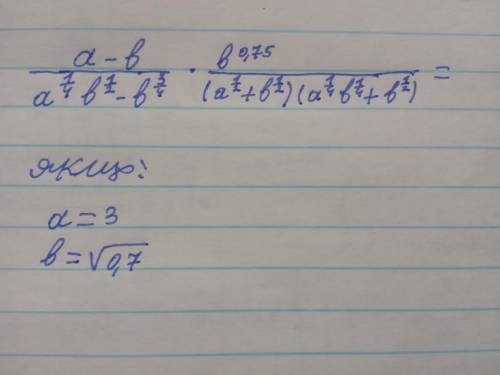 a - b / (a^{1/4} b^{1/2} - b^{3/4}) · b^{0,75} / ((a^{1/2} + b^{1/2}) (a^{1/4} b^{1/4} + b^{1/2})) =
якщо:
a = 3
b = √0,7